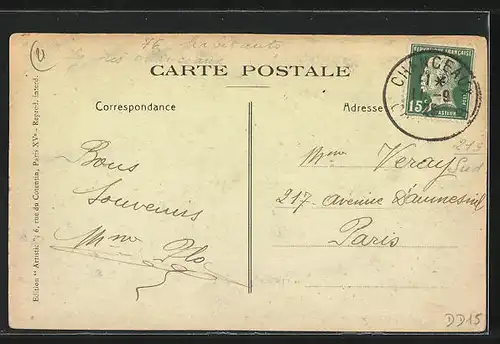 76
CARTE POSTALE
Correspondance
Adresse
RÉPUBLIQUE FRANÇAISE
15c
PASTEUR
-9
Bons
Souvenirs
Mme
Mme Veray
217 avenue Daumesnil
Paris
219
Sud
Edition "Artistic", 6, rue du Cotentin, Paris XVe - Reprod. interd.
DD15